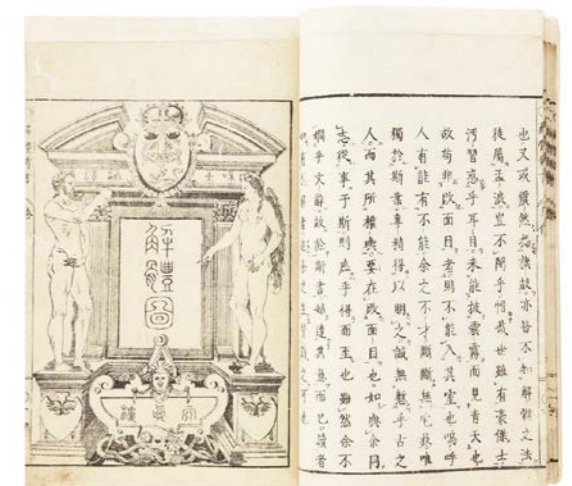 也又或 亦皆不知解體之法
徒屬孟浪豈不閔乎惜哉世雖有豪傑士
汚習惑乎耳目未能披雲霧而見青天也
故苟非改面目者則不能入其室也嗚呼
人有能有不能余之不才斷斷無它技唯
獨於斯業專精得以明之誠無慙乎古之
人而其所權輿要在改面目也如與余同
志從事于斯則庶乎得而至也雖然余不
嫺乎文辭故於斯書姑達其意而已讀者
解體圖